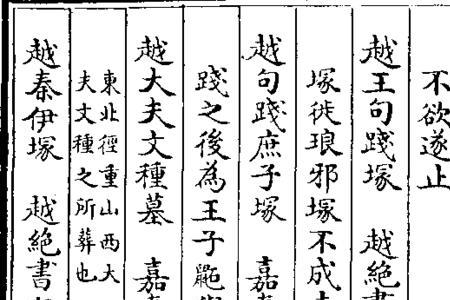 不欲遂止
越王句踐塚　越絶書
塚徙琅邪塚不成
越句踐庶子塚　嘉
踐之後為王子
越大夫文種墓　嘉
東北徑重山西大
夫文種之所葬也
越秦伊塚　越絶書